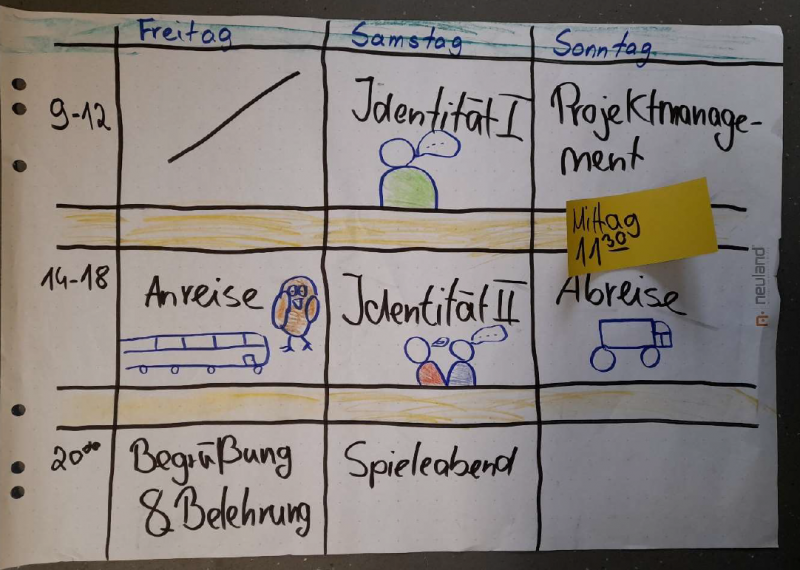 Freitag Samstag Sonntag
9-12 Identität I Projektmanage-
ment
Mittag
11 30
14-18 Anreise Identität II Abreise
neuland
20 00 Begrüßung Spieleabend
& Belehrung